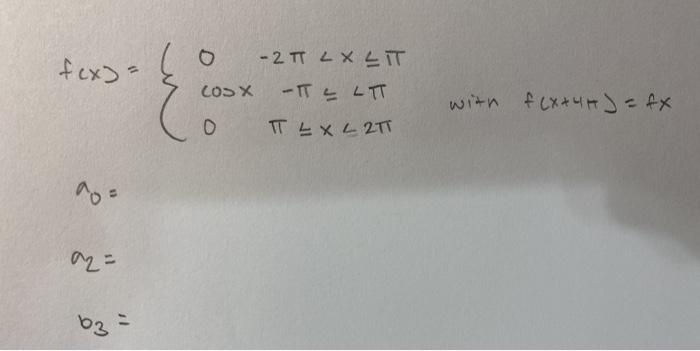 f(x) = { 0 -2π < x ≤ π
cosx -π ≤ < π
0 π ≤ x < 2π
with f(x+4π) = fx
a₀ =
a₂ =
b₃ =